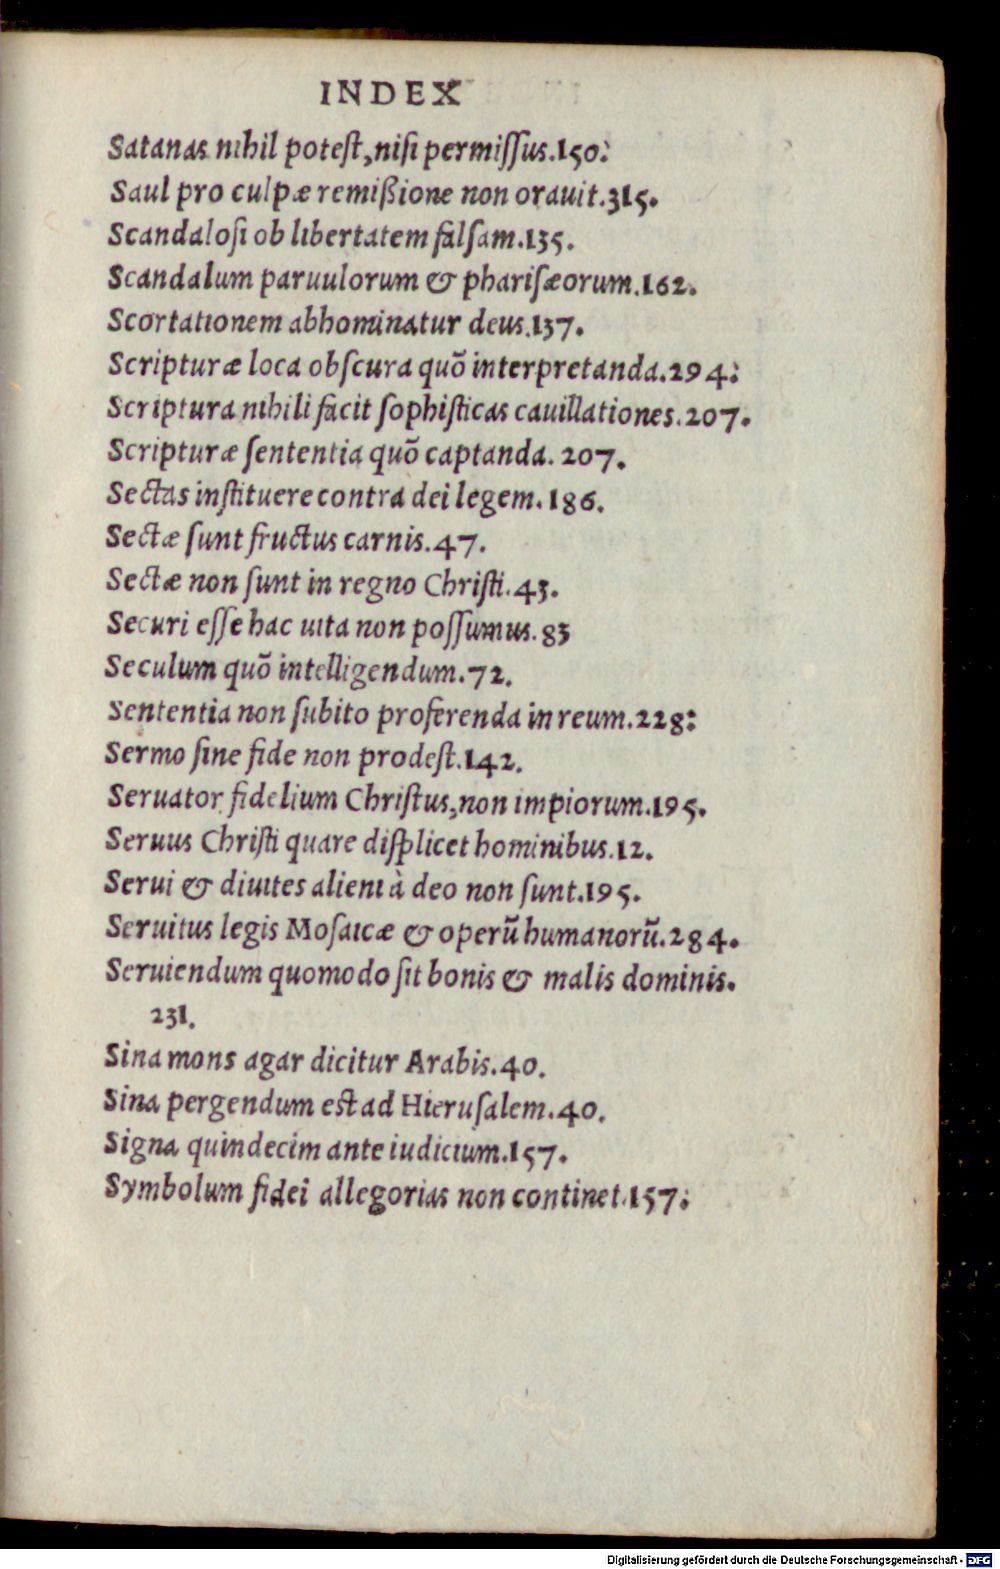 INDEX
Satanas nihil potest, nisi permiſſus.150:
Saul pro culpæ remißione non orauit.315.
Scandaloſi ob libertatem falſam.135.
Scandalum paruulorum & phariſæorum.162.
Scortationem abhominatur deus.137.
Scripturæ loca obſcura quõ interpretanda.294:
Scriptura nihili facit ſophiſticas cauillationes.207.
Scripturæ ſententia quõ captanda. 207.
Sectas inſtituere contra dei legem.186.
Sectæ ſunt fructus carnis.47.
Sectæ non ſunt in regno Chriſti.43.
Securi eſſe hac uita non poſſumus.83
Seculum quõ intelligendum.72.
Sententia non ſubito proferenda in reum.228:
Sermo ſine fide non prodeſt.142.
Seruator fidelium Chriſtus, non impiorum.195.
Seruus Chriſti quare diſplicet hominibus.12.
Serui & diuites alieni à deo non ſunt.195.
Seruitus legis Moſaicæ & operũ humanorũ.284.
Seruiendum quomodo ſit bonis & malis dominis.
231.
Sina mons agar dicitur Arabis.40.
Sina pergendum est ad Hieruſalem.40.
Signa quindecim ante iudicium.157.
Symbolum fidei allegorias non continet.157:
Digitalisierung gefördert durch die Deutsche Forschungsgemeinschaft - DFG